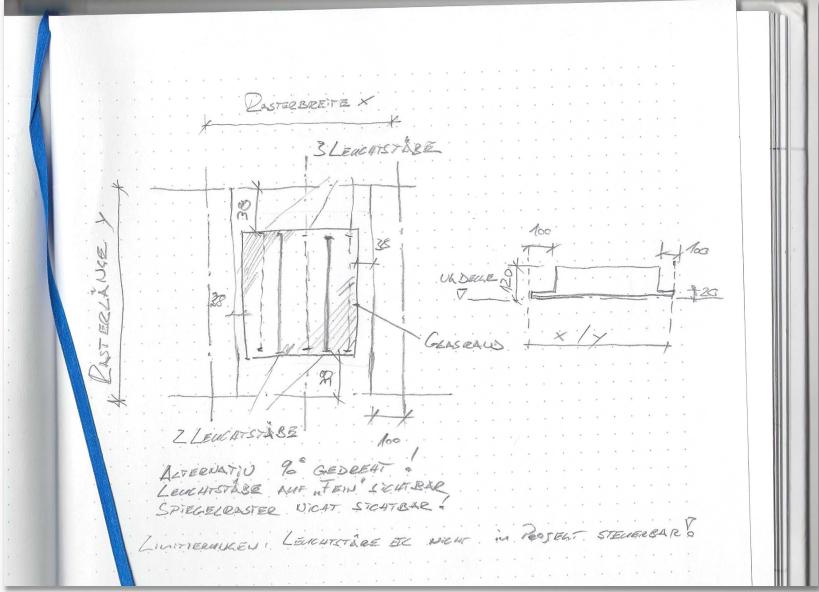 RASTERBREITE X
3 LEUCHTSTÄBE
RASTERLÄNGE Y
38
38
38
38
GLASRAND
2 LEUCHTSTÄBE
100
100
100
UK DECKE
120
20
X / Y
ALTERNATIV 90° GEDREHT!
LEUCHTSTÄBE AUF „FEIN“ SICHTBAR
SPIEGELRASTER NICHT SICHTBAR!
LIMITIERUNGEN: LEUCHTSTÄBE ETC NICHT in PROJEKT STEUERBAR!